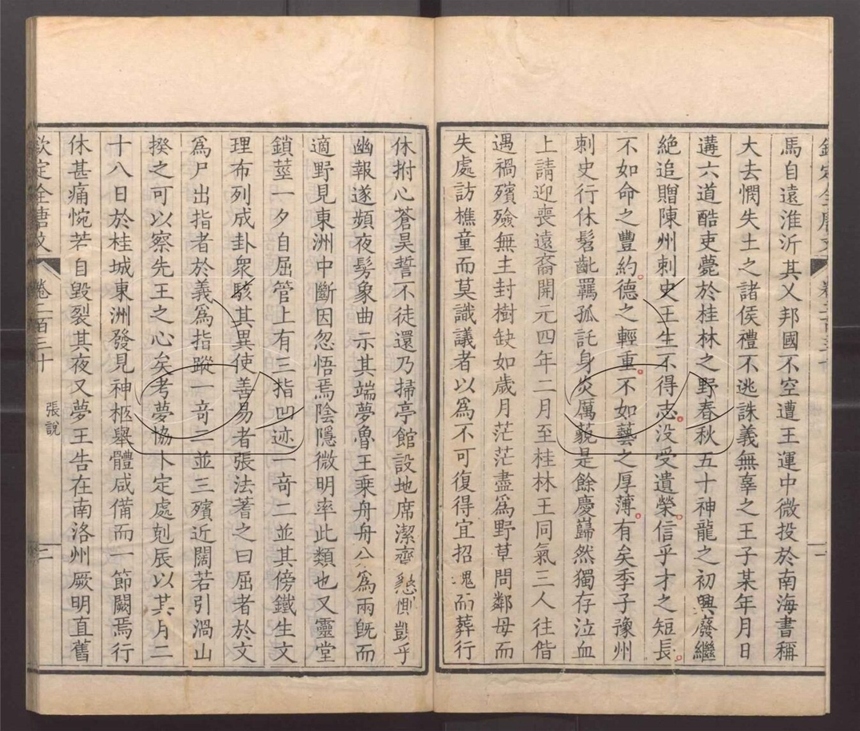 欽定全唐文 卷二百三十 二
馬自遠淮沂其乂邦國不空遭王運中微投於南海書稱
大去憫失土之諸侯禮不逃誅義無辜之王子某年月日
遘六道酷吏薨於桂林之野春秋五十神龍之初興廢繼
絶追贈陳州刺史王生不得志沒受遺榮信乎才之短長
不如命之豐約德之輕重不如藝之厚薄有矣季子豫州
刺史行休髫齔羈孤託身炎厲藐是餘慶巋然獨存泣血
上請迎喪遠裔開元四年二月至桂林王同氣三人往偕
遇禍殯殮無主封樹缺如歲月茫茫盡爲野草問鄰母而
失處訪樵童而莫識議者以爲不可復得宜招魂而葬行
休拊心蒼昊誓不徒還乃掃亭館設地席潔齋懇惻凱乎
幽報遂頻夜髣象曲示其端夢魯王乘舟舟分爲兩既而
適野見東洲中斷因忽悟焉陰隱微明率此類也又靈堂
鎖莖一夕自屈管上有三指凹迹一奇二並其傍鐵生文
理布列成卦衆駭其異使善易者張法著之曰屈者於文
爲尸出指者於義爲指蹤一奇二並三殯近闊若引渦山
揆之可以察先王之心矣考夢協卜定處刻辰以其月二
十八日於桂城東洲發見神柩舉體咸備而一節闕焉行
休甚痛惋若自毀裂其夜又夢王告在南洛州厥明直舊
欽定全唐文 卷二百三十 張說 二